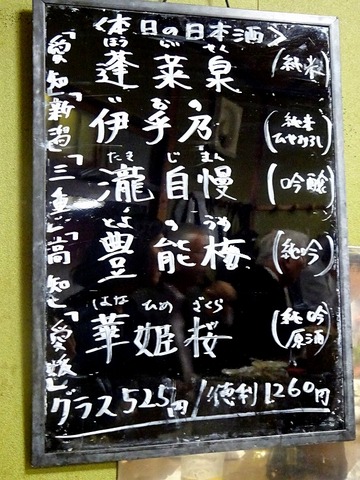 〈本日の日本酒〉
「愛知」蓬莱泉(純米)
ほう らい せん
「新潟」伊乎乃(純米ひやおろし)
い お の
「三重」瀧自慢(吟醸)
たき じ まん
「高知」豊能梅(純吟)
とよ の うめ
「愛媛」華姫桜(純吟原酒)
はな ひめ ざくら
グラス525円/徳利1260円